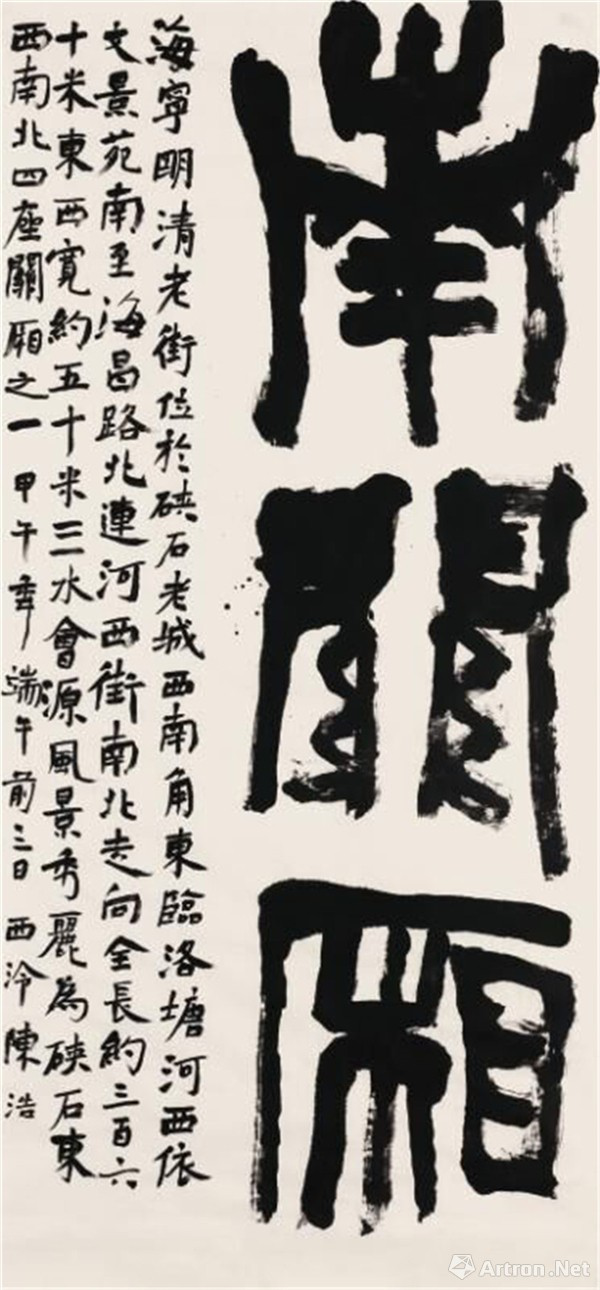 南關厢
海寧明清老街位於硖石老城西南角東臨洛塘河西依
文景苑南至海昌路北連河西街南北走向全長約三百六
十米東西寬約五十米三水會源風景秀麗為硖石東
西南北四座關厢之一 甲午年端午前三日 西泠陳浩
Artron.Net